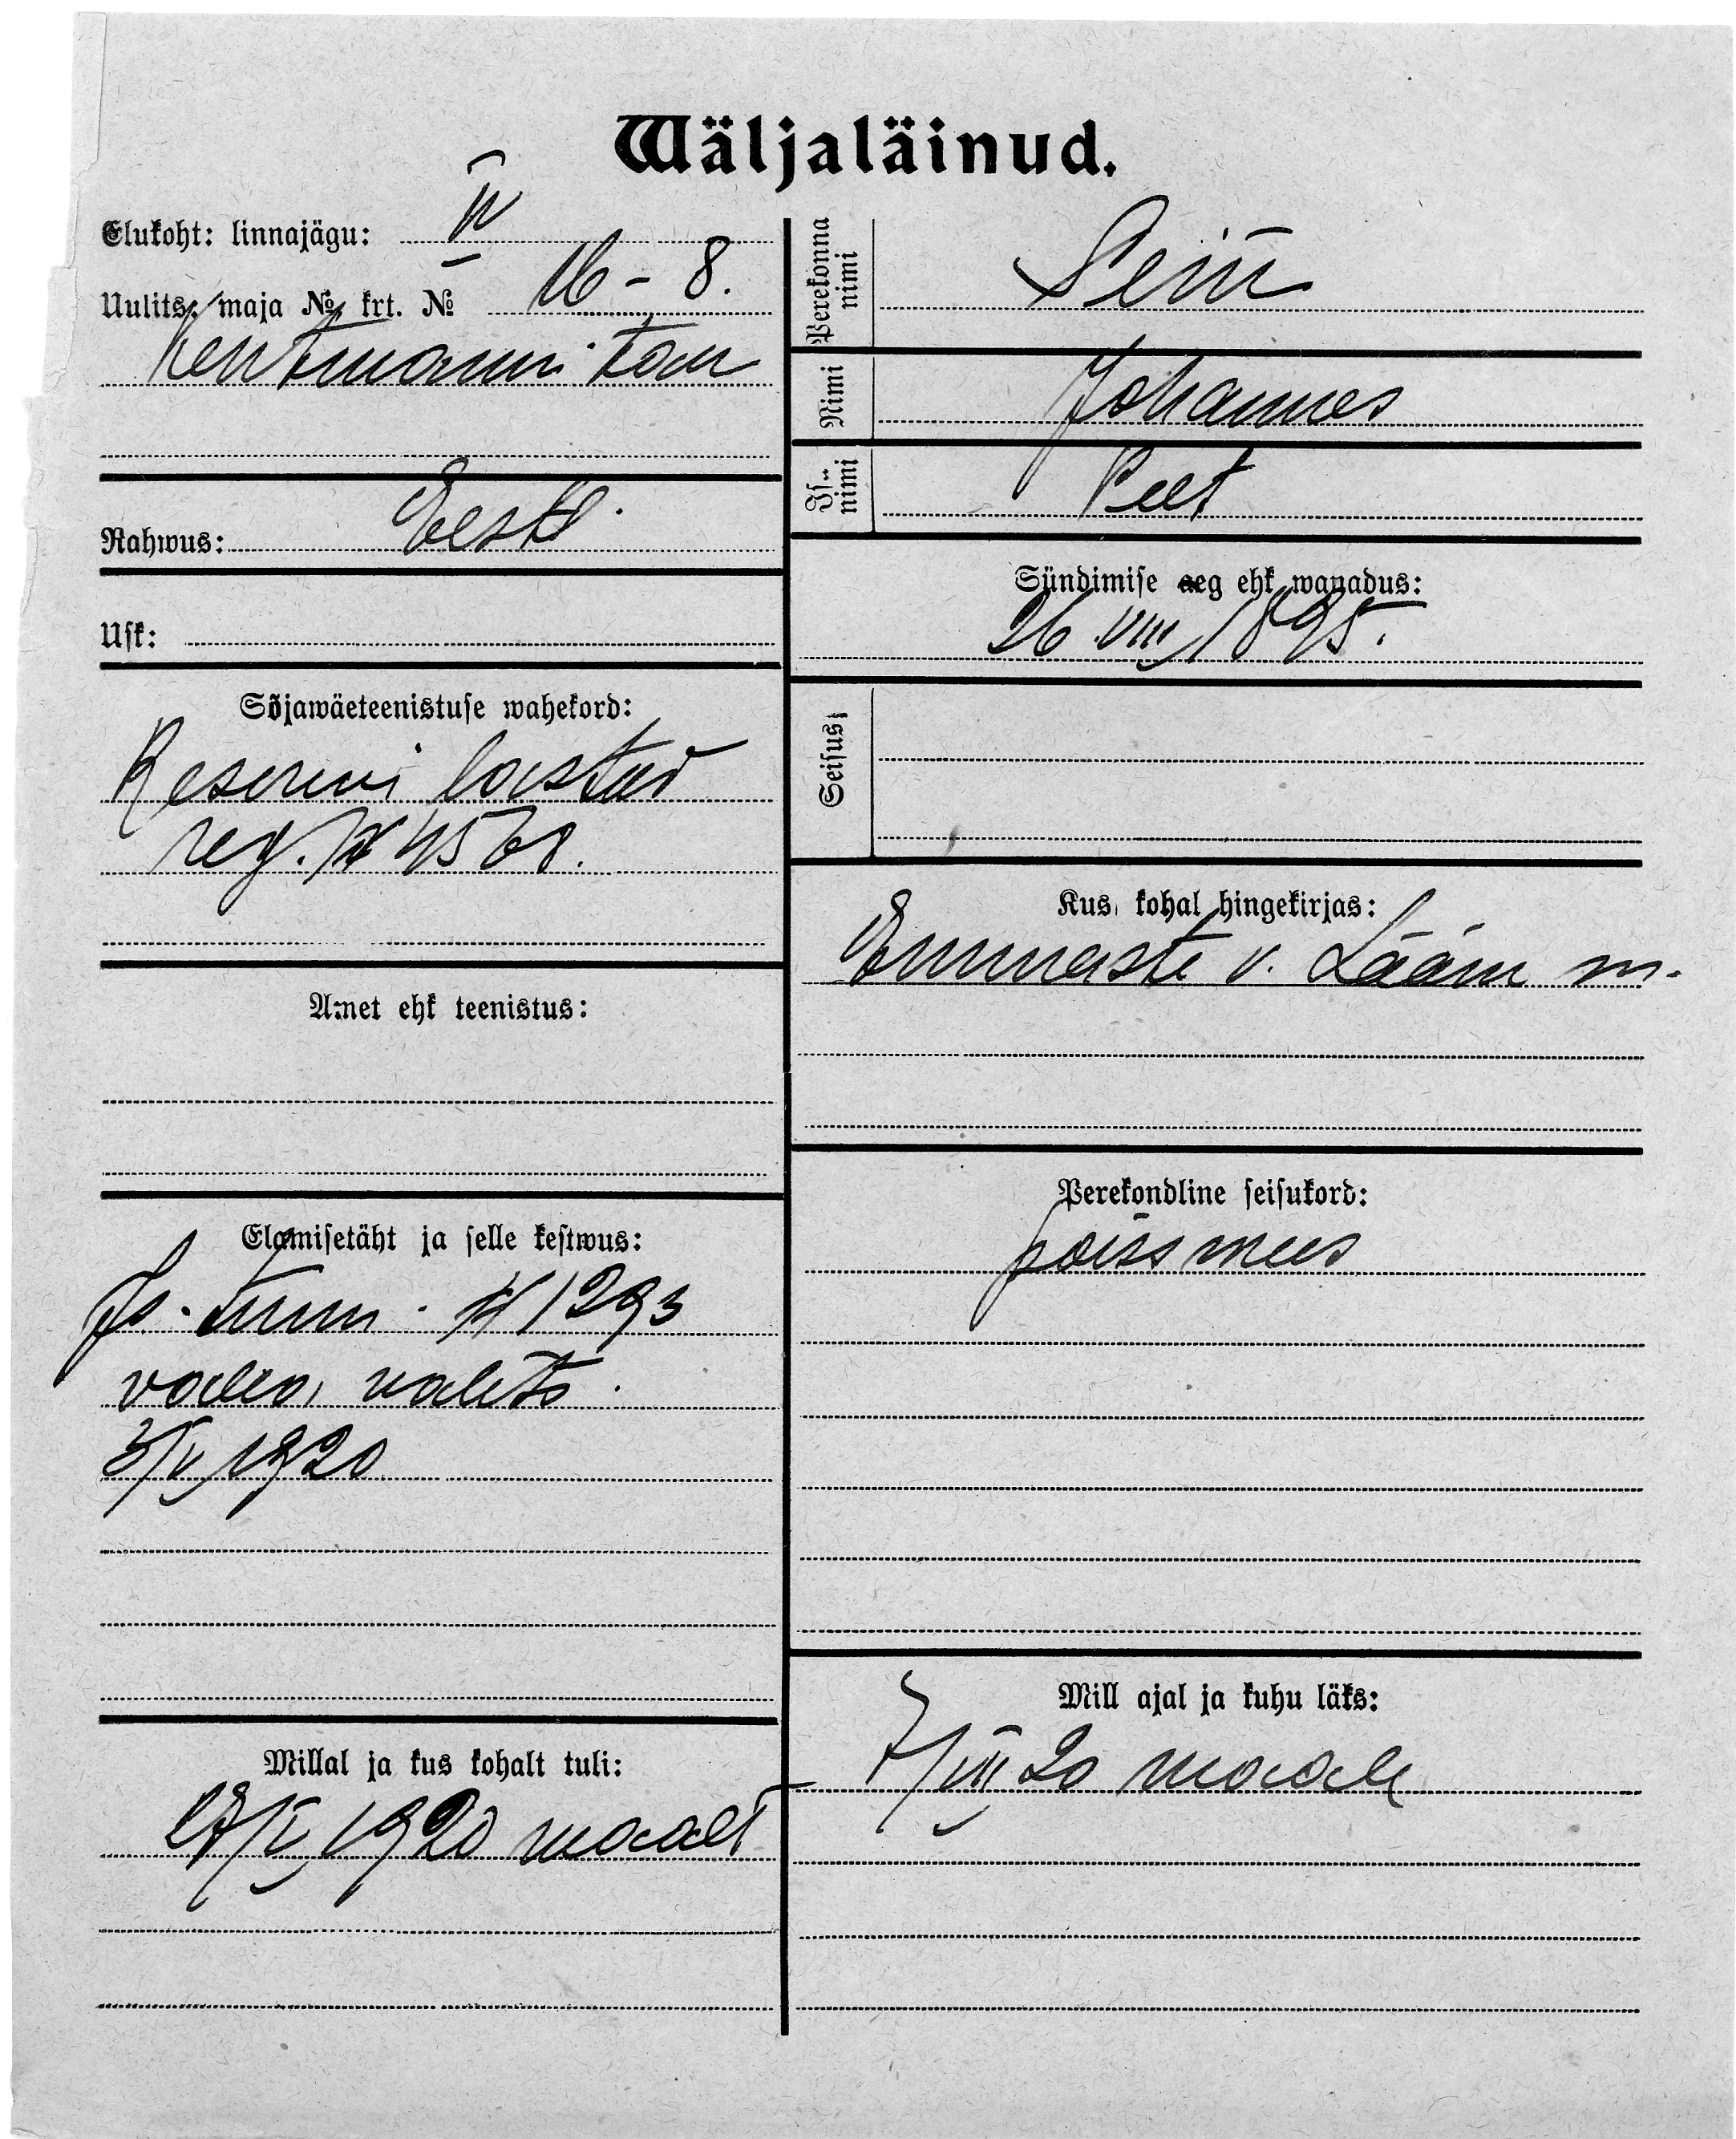 Wäljaläinud.
Elukoht: linnajägu: IV
Uulits, maja № krt. № 16 - 8.
Kentmanni tän
Rahwus: Eesti.
Usk:
Sõjawäeteenistuse wahekord:
Reservi lastud
reg. № 4568.
Amet ehk teenistus:
Elamisetäht ja selle kestwus:
Is. tunn. № 1293
valla valits.
3/V 1920
Millal ja kus kohalt tuli:
17/V 1920 maalt
Perekonna nimi
Seiü
Nimi Johannes
Is.. nimi Peet
Sündimise aeg ehk wanadus:
26 VIII 1895.
Seisus
Kus kohal hingekirjas:
Emmaste v. Lääne m.
Perekondline seisukord:
poissmees
Mill ajal ja kuhu läks:
7/VIII 20 maale